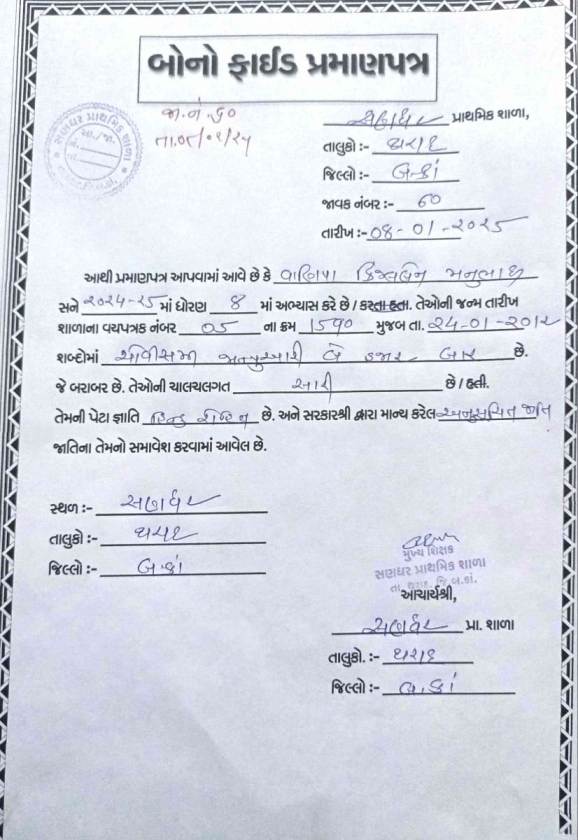 બોનો ફાઈડ પ્રમાણપત્ર
જા.નં. ૬૦
સણધર પ્રાથમિક શાળા,
તા.૦૮/૦૧/૨૫
તાલુકો :- થરાદ
જિલ્લો :- બ.કાં
જાવક નંબર :- 60
તારીખ :- 08-01-2025
આથી પ્રમાણપત્ર આપવામાં આવે છે કે મનુભાઈ
સને ૨૦૨૪-૨૫ માં ધોરણ 8 માં અભ્યાસ કરે છે / કરતા હતા. તેઓની જન્મ તારીખ
શાળાના વયપત્રક નંબર 05 ના ક્રમ 1590 મુજબ તા. 24-01-2012
શબ્દોમાં ચોવીસમી જાન્યુઆરી બે હજાર બાર છે.
જે બરાબર છે. તેઓની ચાલચલગત સારી છે / હતી.
તેમની પેટા જ્ઞાતિ હિન્દુ છે. અને સરકારશ્રી દ્વારા માન્ય કરેલ અનુસુચિત જાતિ
જાતિના તેમનો સમાવેશ કરવામાં આવેલ છે.
સ્થળ :- સણધર
તાલુકો :- થરાદ
જિલ્લો :- બ.કાં
મુખ્ય શિક્ષક
સણધર પ્રાથમિક શાળા
તા. થરાદ. જિ.બ.કાં.
આચાર્યશ્રી,
સણધર પ્રા. શાળા
તાલુકો. :- થરાદ
જિલ્લો :- બ.કાં